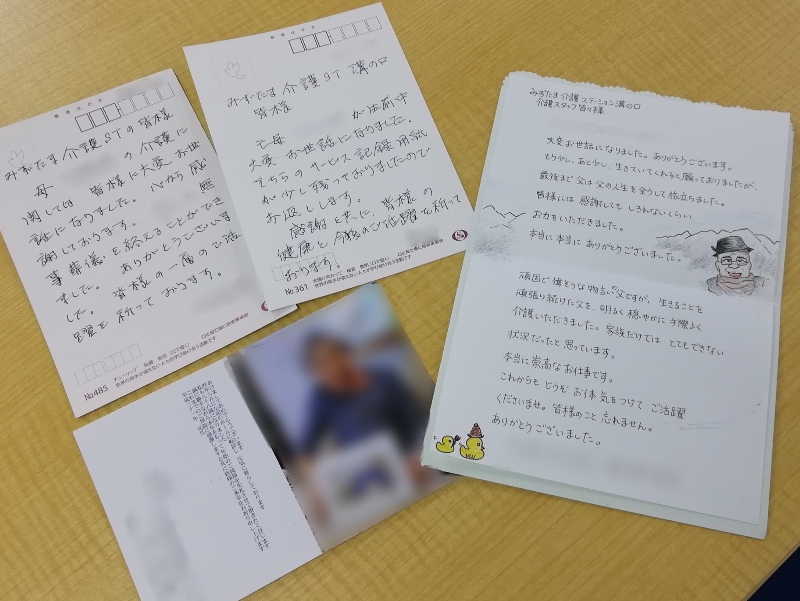 郵便はがき
みずたま介護STの皆様
母
の介護に
関しては 皆様に大変お世
話になりました。心から感
謝しております。
事葬儀を終えることができ
ました。ありがとうございま
した。皆様の一層のご活
躍を祈っております。
No485
郵便はがき
みずたま介護ST 溝の口
皆様
亡母
が生前中
大変お世話になりました。
そちらのサービス記録用紙
が少し残っておりましたので
お返しします。
感謝と共に、皆様の
健康と今後のご活躍を祈って
おります!
No361
みずたま介護ステーション溝の口
介護スタッフ皆々様
大変お世話になりました。ありがとうございます。
もう少し、あと少し、生きていてくれると願っておりましたが、
最後まで父は父の人生を全うして旅立ちました。
皆様には感謝しても しきれないくらい
お力をいただきました。
本当に本当に ありがとうございました。
頑固で偉そうな物言いの父ですが、生きることを
頑張り続けた父を、明るく穏やかに手際よく
介護いただきました。家族だけでは とてもできない
状況だったと思っています。
本当に崇高なお仕事です。
これからも どうぞ お体気をつけて ご活躍
くださいませ。皆様のこと 忘れません。
ありがとうございました。